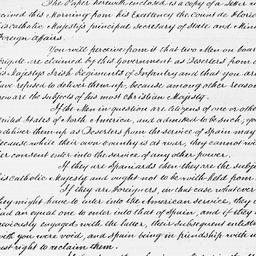 The Paper herewith enclosed is a copy of a letter
received this Morning from his Excellency the Count de Florid
his catholic Majesty's principal Secretary of State and Mini
Foreign Affairs.
You will perceive from it that two Men on boar
Brigate, are claimed by this Government as Deserters from
his Majesty's Irish Regiments of Infantry and that you are
have refused to deliver them up, because among other reason
now are the subjects of his most Christian Majesty.
If the Men in question are citizens of one or othe
United States of North America, and admitted to be such, yo
deliver them up as Deserters from the service of Spain may
because while their own Country is at war, they cannot wi
her consent enter into the service of any other power.
If they are Spaniards then they are the subje
his catholic Majesty and ought not to be with held from
If they are Foreigners, in that case whatever
they might have to enter into the American service, they
had an equal one to enter into that of Spain, and if they
previously engaged with the latter, their subsequent enlist
with you were void, and Spain being in friendship with u
just right to reclaim them.